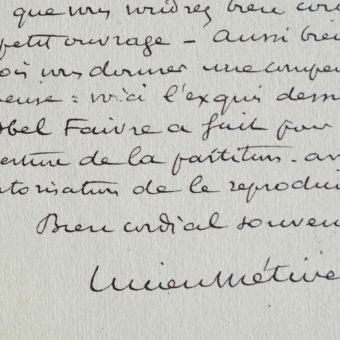 que vous voudrez bien cor
petit ouvrage - aussi bie
ois vous donner une compe
euse : voici l'exquis dess
Abel Faivre a fait pour
erture de la partition. av
utorisation de le reprodui
Bien cordial souven
Lucien Métive